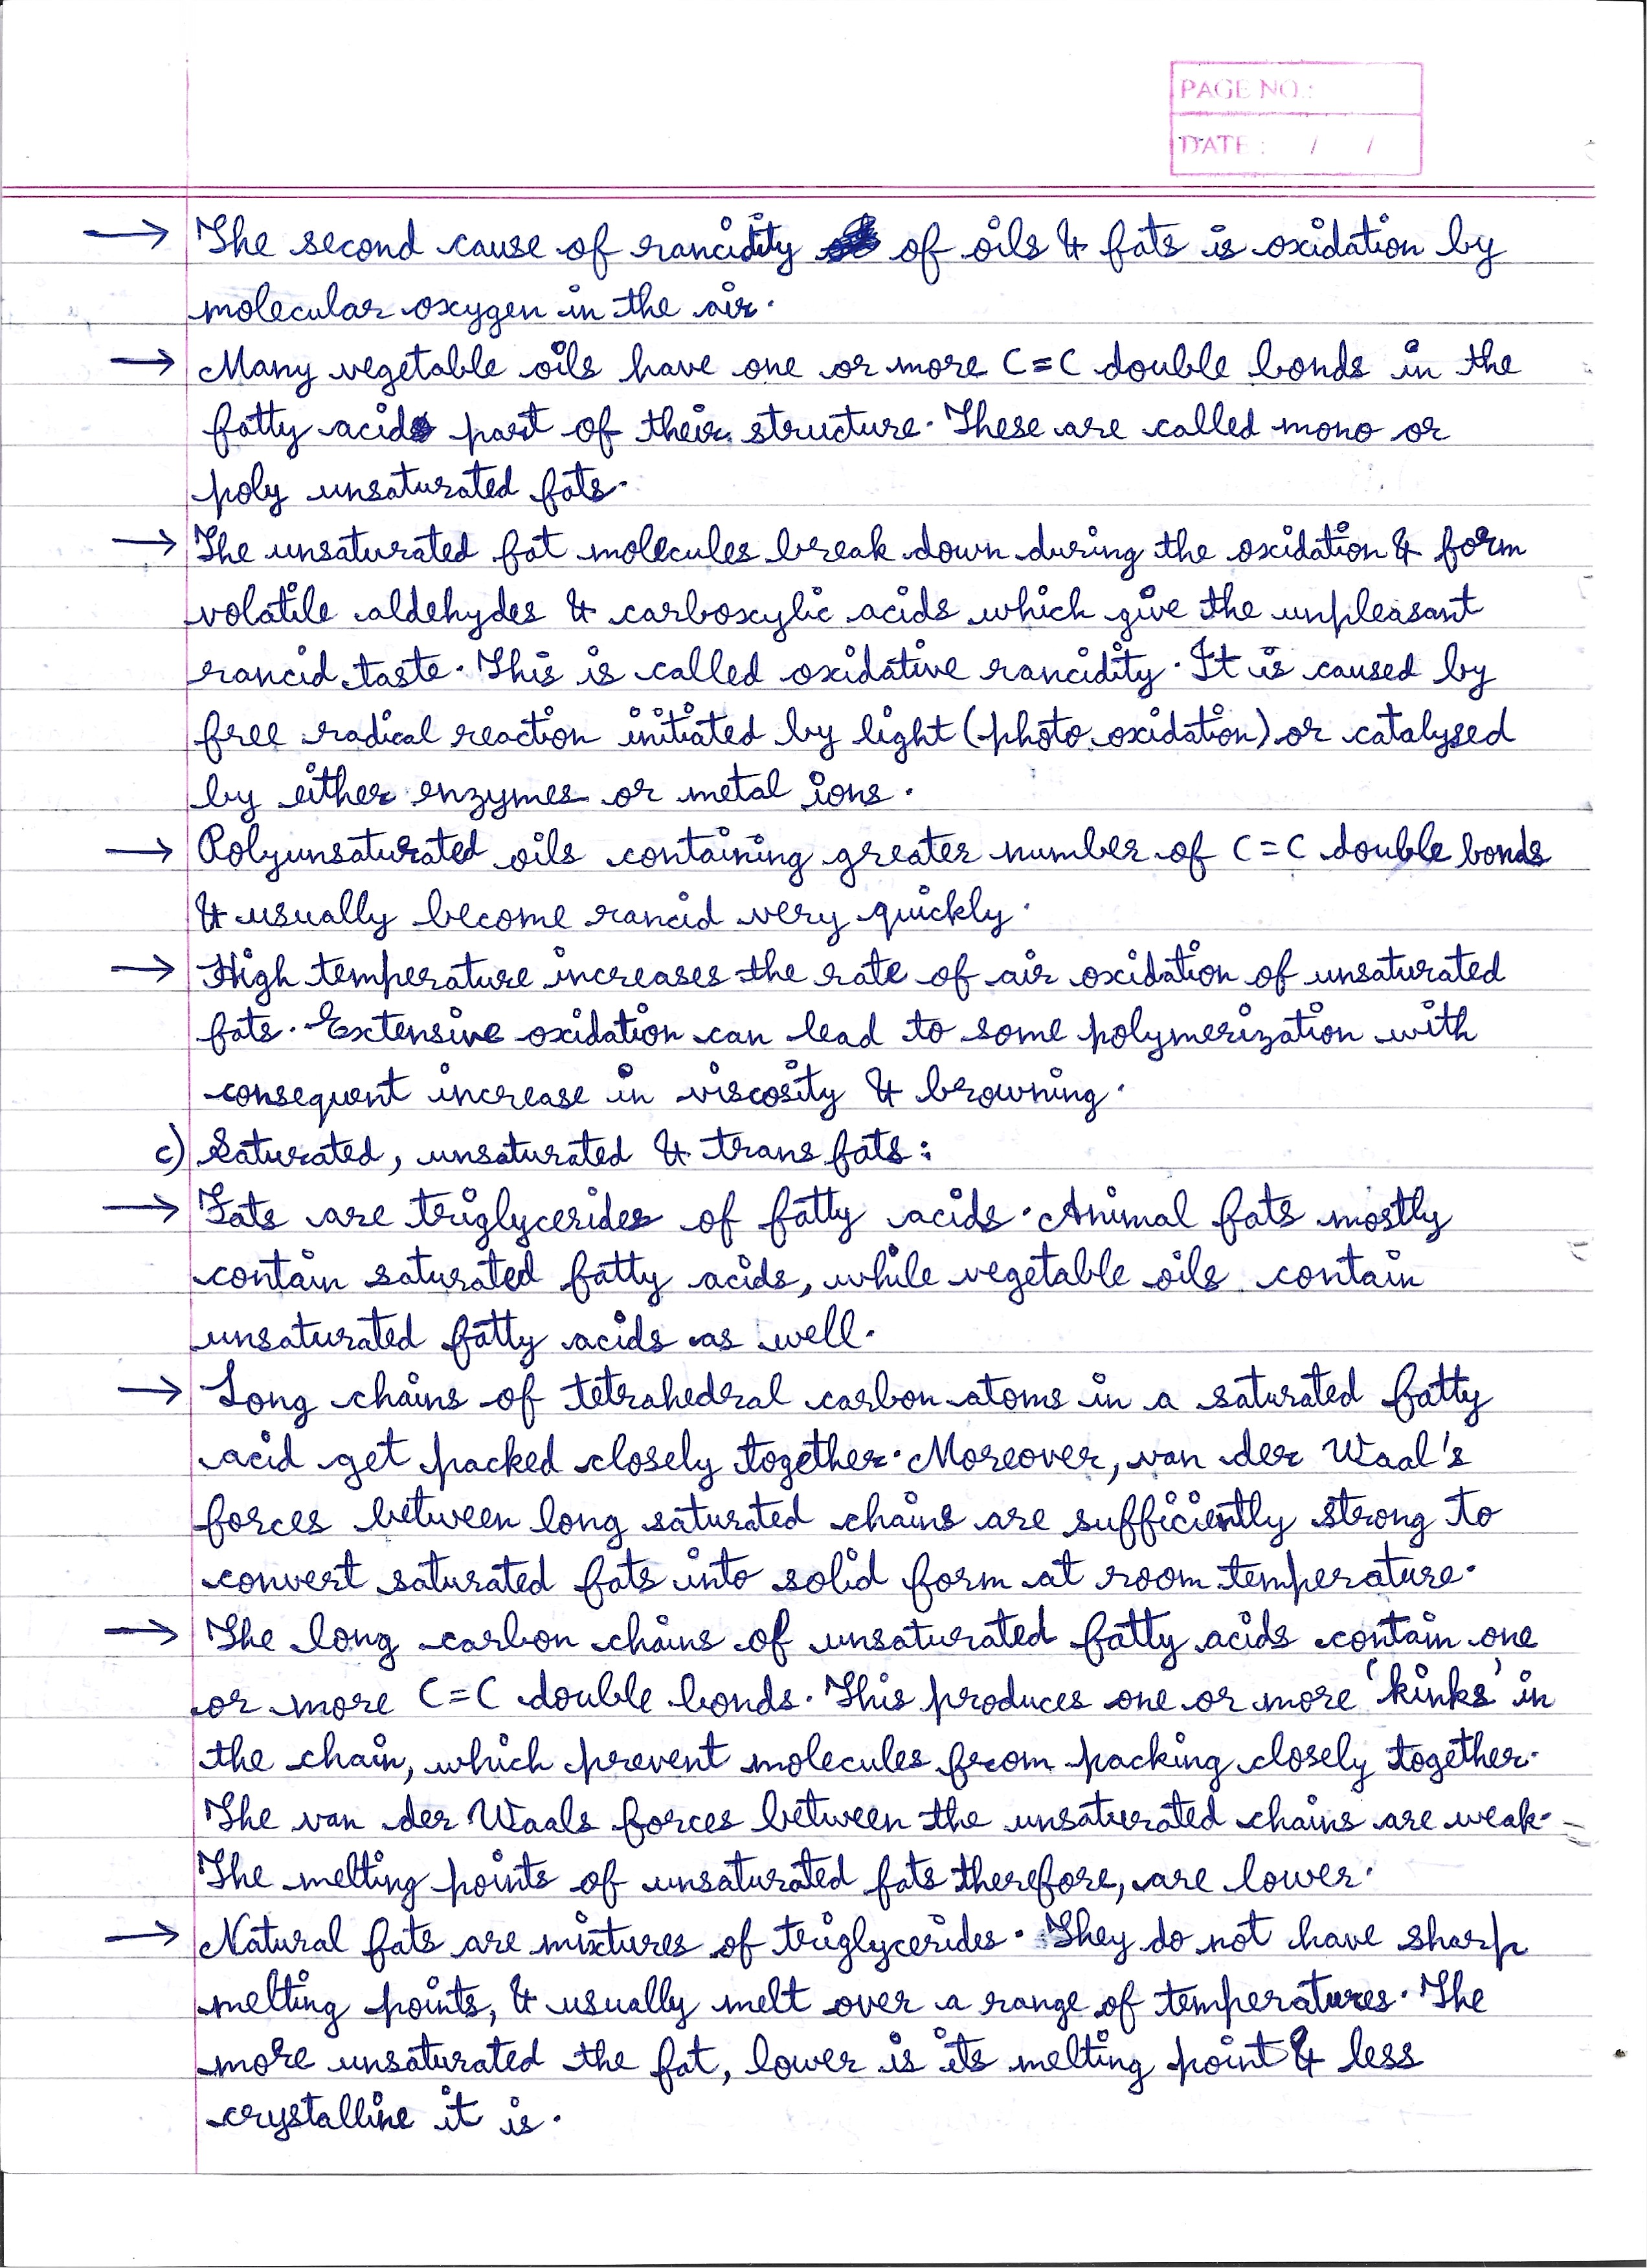 PAGE NO.:
DATE : / /
→ The second cause of rancidity of oils & fats is oxidation by
molecular oxygen in the air.
→ Many vegetable oils have one or more C=C double bonds in the
fatty acid part of their structure. These are called mono or
poly unsaturated fats.
→ The unsaturated fat molecules break down during the oxidation & form
volatile aldehydes & carboxylic acids which give the unpleasant
rancid taste. This is called oxidative rancidity. It is caused by
free radical reaction initiated by light (photo oxidation) or catalysed
by either enzymes or metal ions.
→ Polyunsaturated oils containing greater number of C=C double bonds
& usually become rancid very quickly.
→ High temperature increases the rate of air oxidation of unsaturated
fats. Extensive oxidation can lead to some polymerization with
consequent increase in viscosity & browning.
c) Saturated, unsaturated & trans fats:
→ Fats are triglycerides of fatty acids. Animal fats mostly
contain saturated fatty acids, while vegetable oils contain
unsaturated fatty acids as well.
→ Long chains of tetrahedral carbon atoms in a saturated fatty
acid get packed closely together. Moreover, van der Waal's
forces between long saturated chains are sufficiently strong to
convert saturated fats into solid form at room temperature.
→ The long carbon chains of unsaturated fatty acids contain one
or more C=C double bonds. This produces one or more 'kinks' in
the chain, which prevent molecules from packing closely together.
The van der Waals forces between the unsaturated chains are weak.
The melting points of unsaturated fats therefore, are lower.
→ Natural fats are mixtures of triglycerides. They do not have sharp
melting points, & usually melt over a range of temperatures. The
more unsaturated the fat, lower is its melting point & less
crystalline it is.